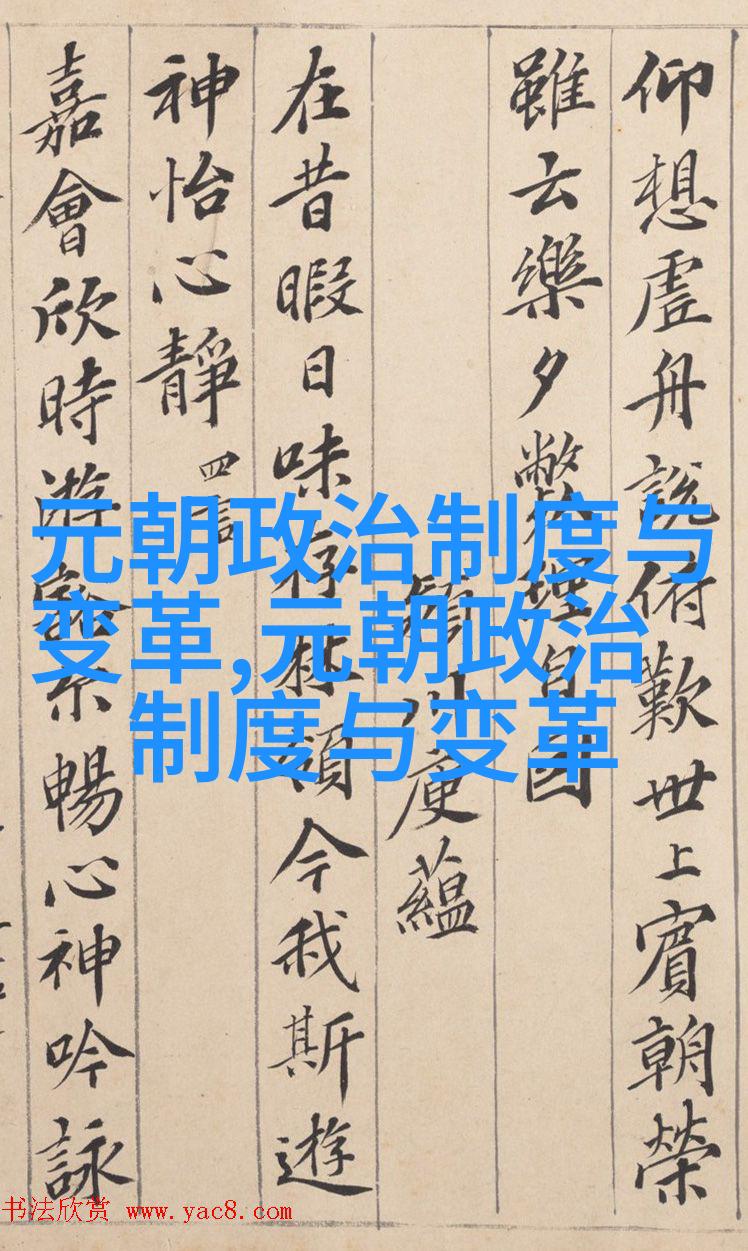 仰想虛舟說俯歎世上賓朝榮
雖云樂夕斃理自因
川庾蘊
在昔暇日味存林嶺今我斯遊
神怡心靜 四言
嘉會欣時游尔暢心神吟詠
元朝政治制度与
变革,元朝政治
制度与变革
书法欣赏 www.yac8.com